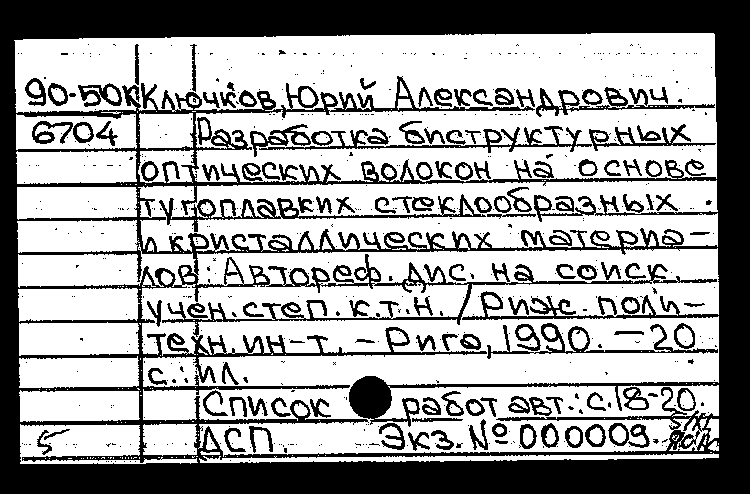 90-50К Ключков, Юрий Александрович.
6704 Разработка биструктурных
оптических волокон на основе
тугоплавких стеклообразных
и кристаллических материа-
лов: Автореф. дис. на соиск.
учен. степ. к.т.н. / Риж. поли-
техн. ин-т. - Рига, 1990. - 20
с.: ил.
Список работ авт.: с. 18-20.
5 ДСП. Экз. № 000009.